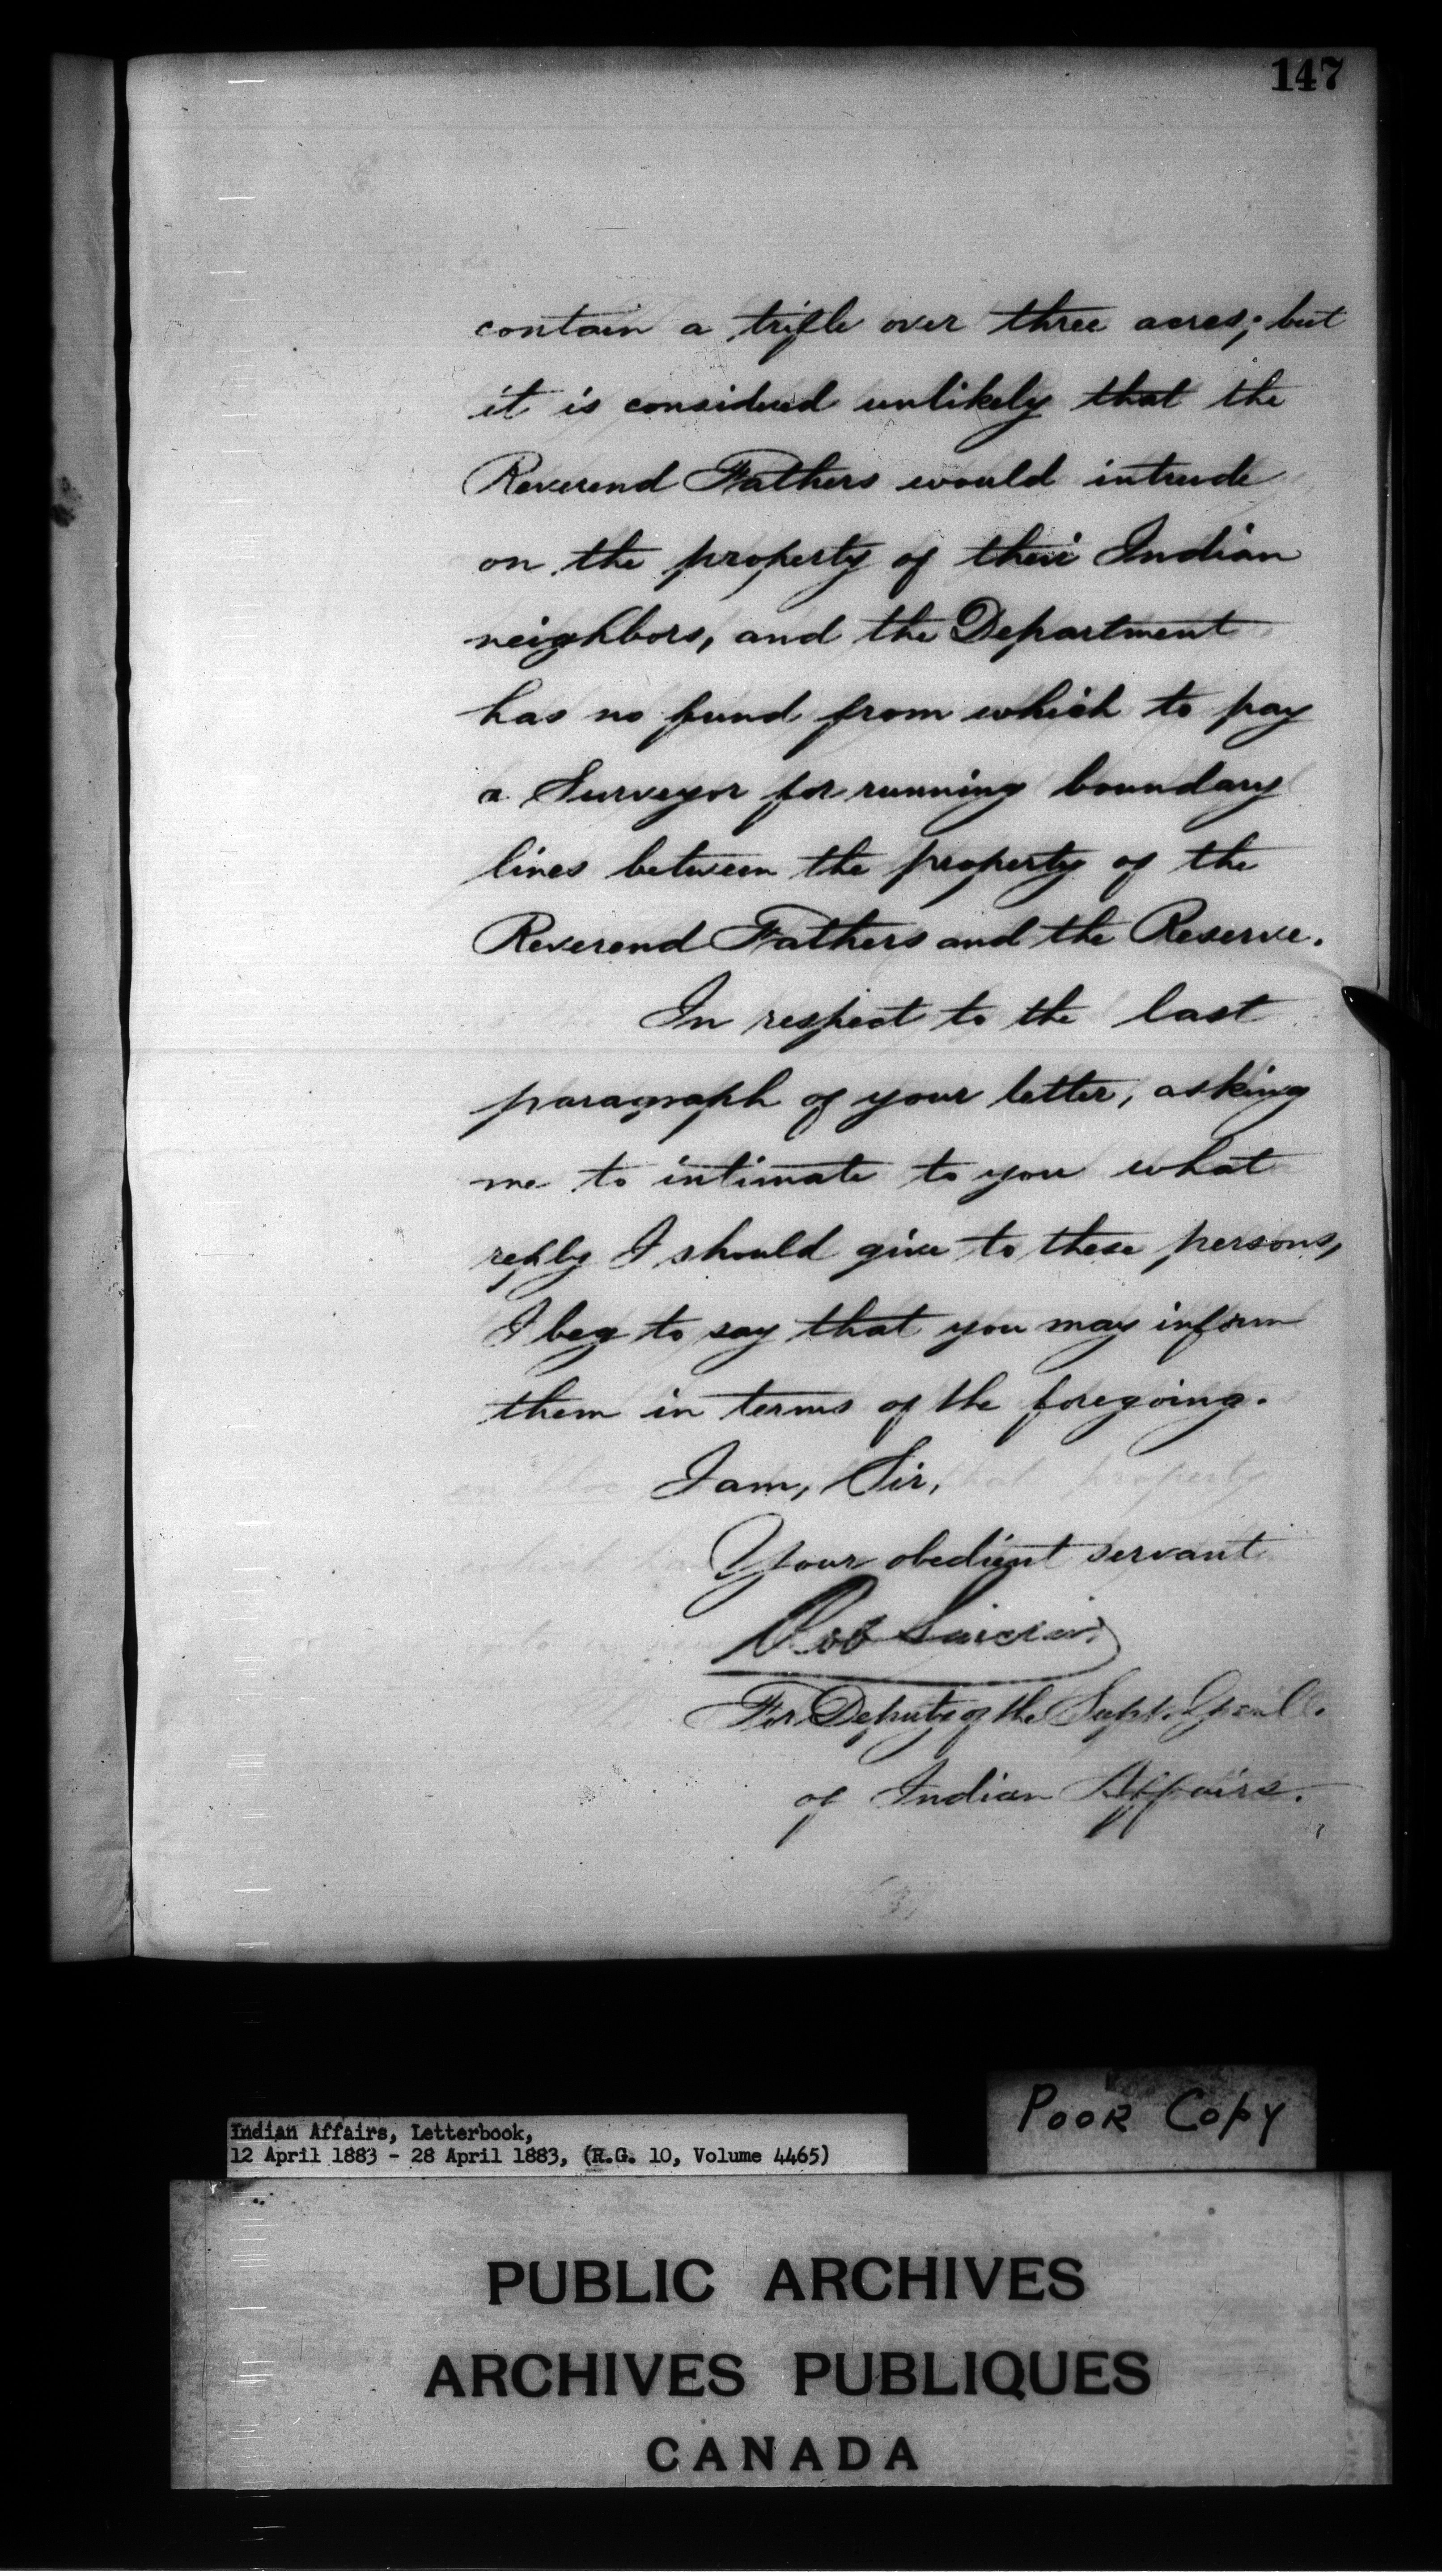 147
contain a trifle over three acres; but
it is considered unlikely that the
Reverend Fathers would intrude
on the property of their Indian
neighbors, and the Department
has no fund from which to pay
a Surveyor for running boundary
lines between the property of the
Reverend Fathers and the Reserve.
In respect to the last
paragraph of your letter, asking
me to intimate to you what
reply I should give to these persons,
I beg to say that you may inform
them in terms of the foregoing.
I am, Sir,
Your obedient servant
Rob Sinclair
For Deputy of the Supt. Genl.
of Indian Affairs.
POOR COPY
Indian Affairs, Letterbook,
12 April 1883 - 28 April 1883, (R.G. 10, Volume 4465)
PUBLIC ARCHIVES
ARCHIVES PUBLIQUES
CANADA